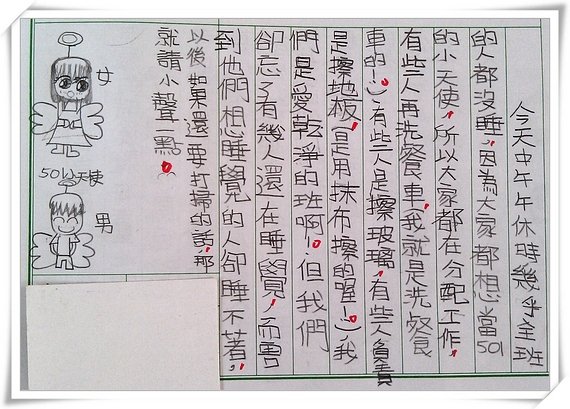 今天中午午休時幾乎全班
的人都沒睡,因為大家都想當501
的小天使,所以大家都在分配工作,
有些人再洗餐車,(我就是洗餐
車的!。)有些人是擦玻璃,有些人負責
是擦地板,(是用抹布擦的喔!。)我
們是愛乾淨的班啊!。但我們
卻忘了有幾人還在睡覺,而害
到他們想睡覺的人卻睡不著,
以後如果還要打掃的話,那
就請小聲一點。
女
501小天使
男